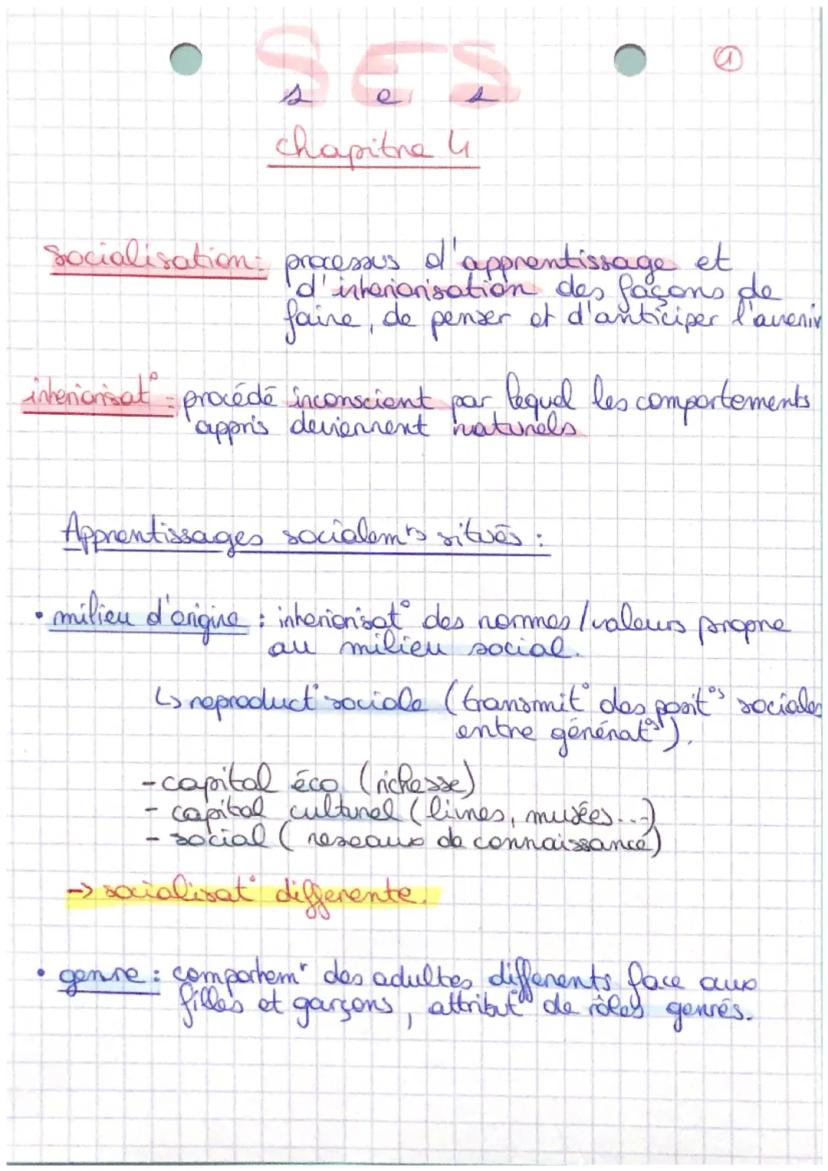 SES
①
s e s
chapitre 4
socialisation : processus d'apprentissage et
d'interiorisation des façons de
faire, de penser et d'anticiper l'avenir
interiorisat° : procédé inconscient par lequel les comportements
appris deviennent naturels
Apprentissages socialemts situés :
• milieu d'origine : interiorisat° des normes/valeurs propre
au milieu social.
↳ reproduct° sociale (transmit° des posit°s sociales
entre générat°s).
- capital éco (richesse)
- capital culturel (livres, musées...)
- social (reseaux de connaissance)
→ socialisat° differente.
• genre : comportemt des adultes differents face aux
filles et garçons, attribut° de rôles genrés.